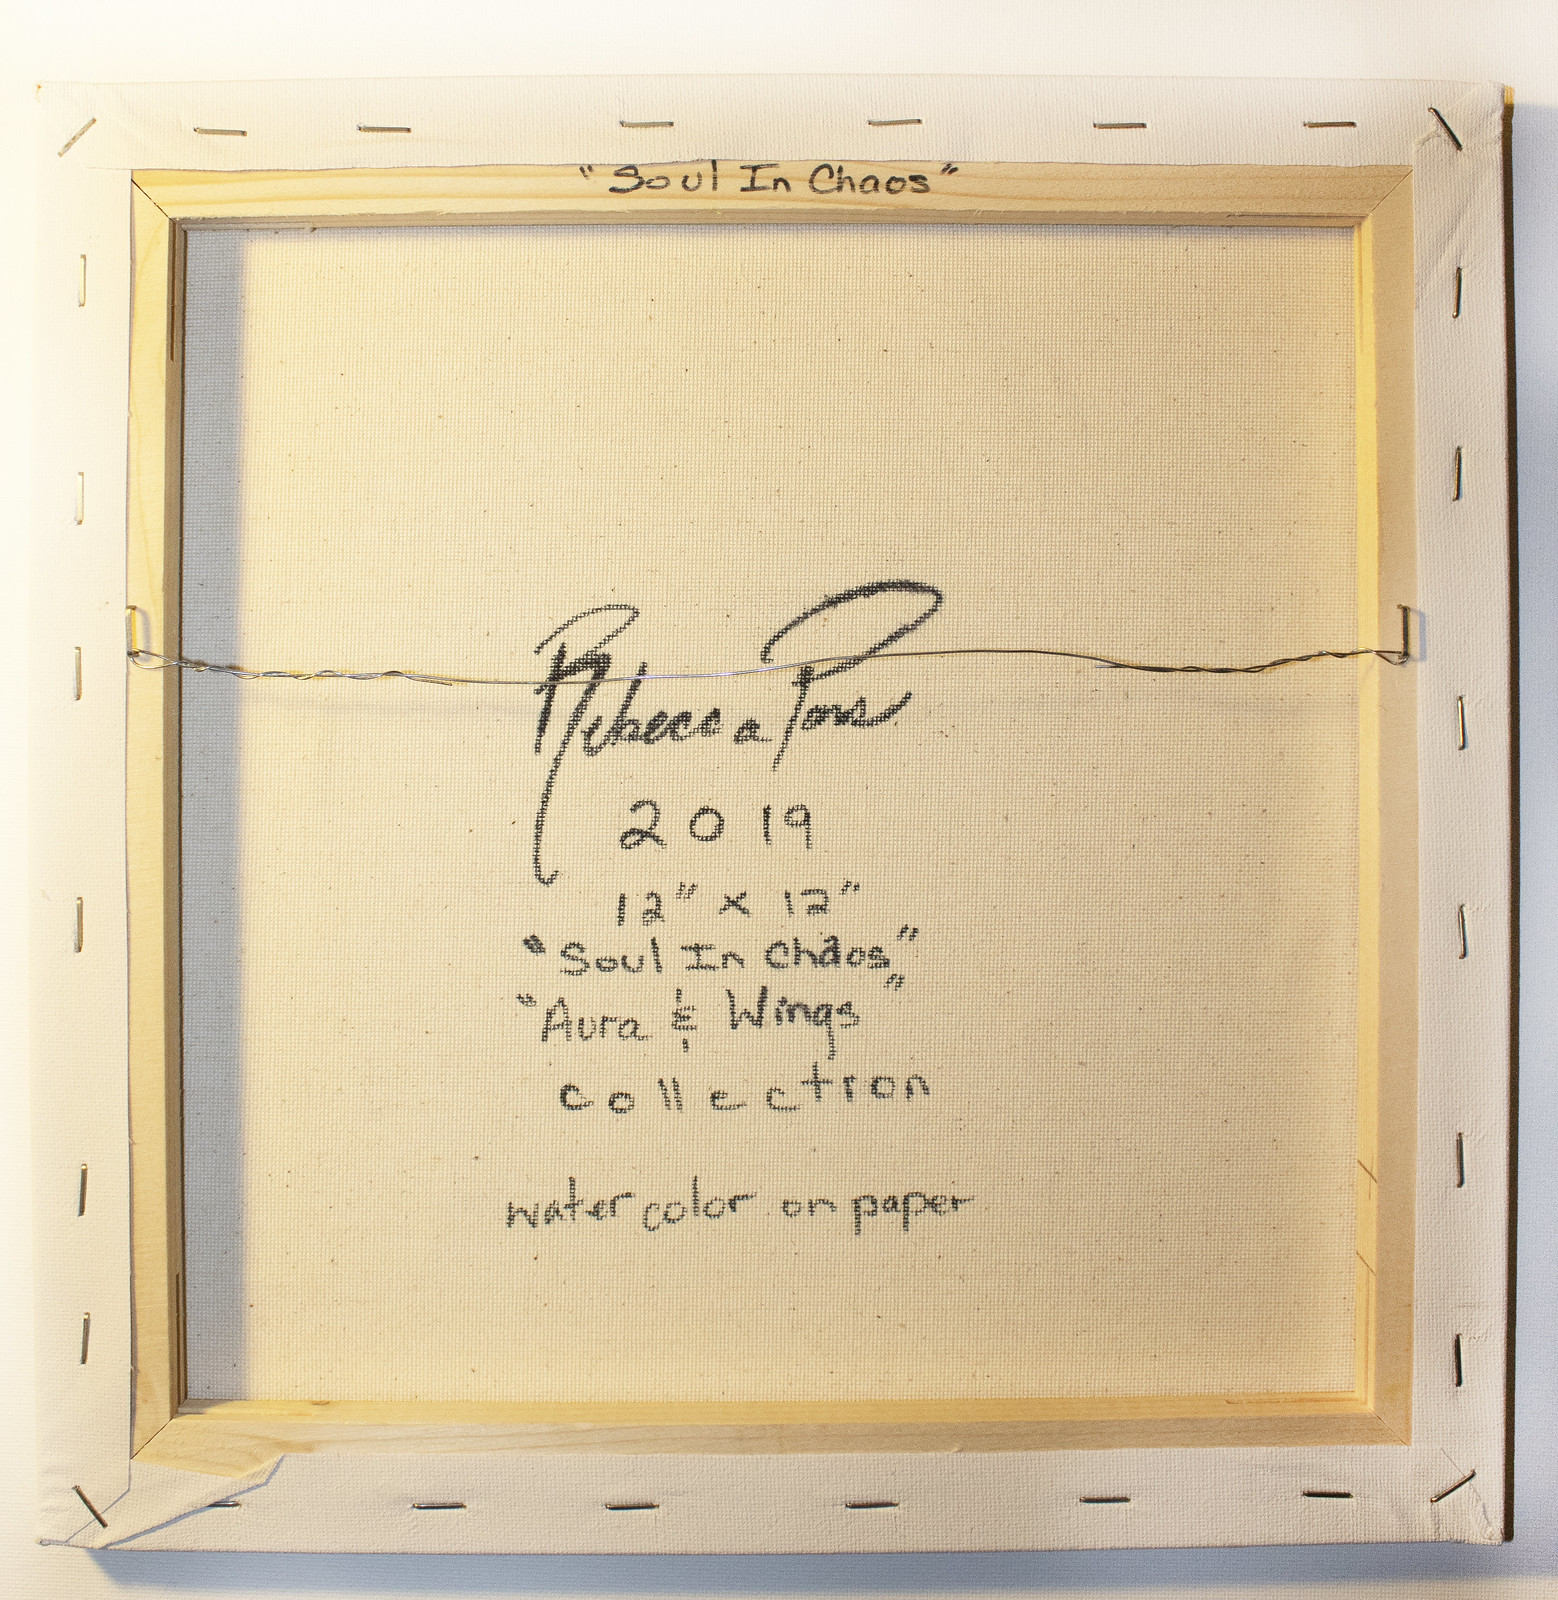 "Soul In Chaos"
Rebecca
2019
12" x 12"
"Soul In Chaos"
"Aura & Wings"
collection
watercolor on paper